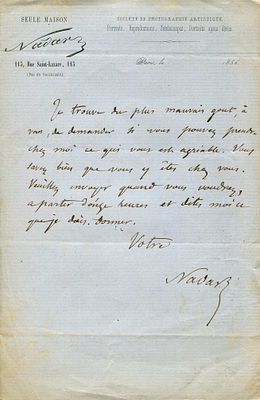 SEULE MAISON
Nadar
113, Rue Saint-Lazare, 113
SOCIÉTÉ DE PHOTOGRAPHIE ARTISTIQUE.
Portraits, Reproductions,
le 185
Je trouve du plus mauvais gout, à
vous, de demander si vous pouvez prendre
chez moi ce qui vous est agréable. Vous
savez bien que vous y êtes chez vous.
Veuillez envoyer quand vous voudrez,
a partir d'onze heures et dites moi ce
que je dois donner.
Votre
Nadar